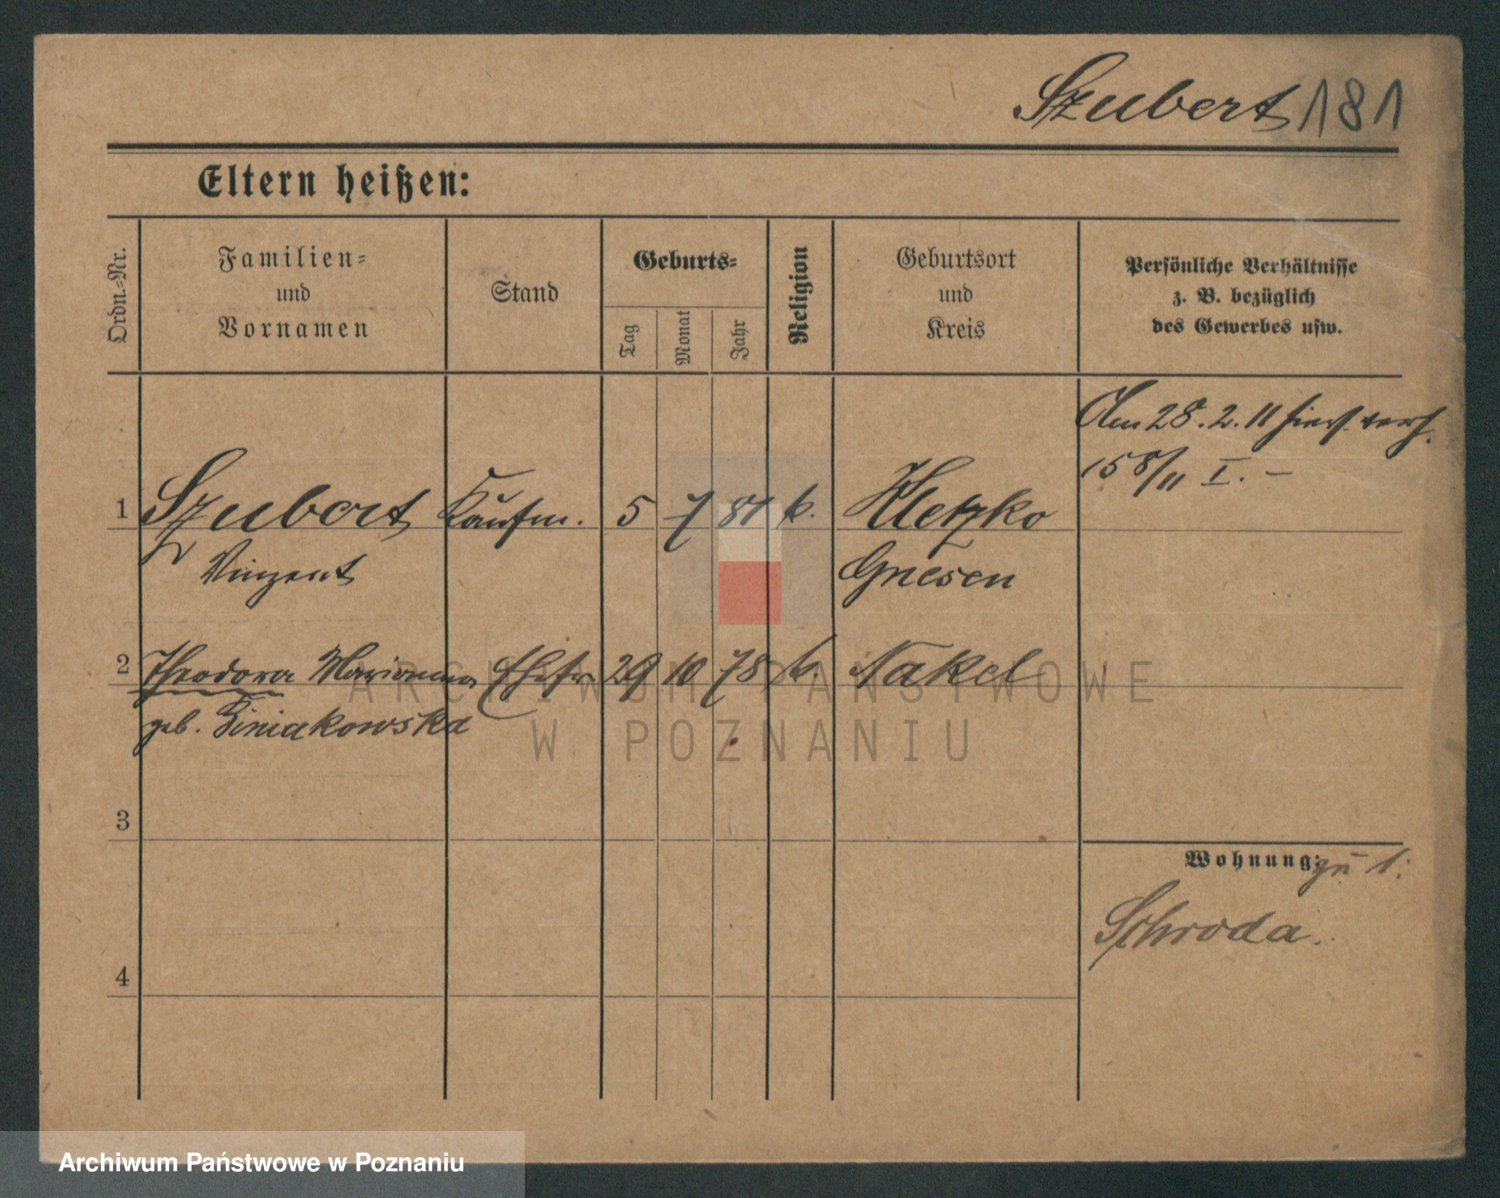 Szubert 181
Eltern heißen:
Ordn.-Nr.
Familien-
und
Vornamen
Stand
Geburts-
Tag
Monat
Jahr
Religion
Geburtsort
und
Kreis
Persönliche Verhältnisse
z. B. bezüglich
des Gewerbes usw.
Am 28. 2. 11 hies. verh.
158/11 I. –
1 Szubert Kaufm. 5 7 81 k. Kletzko
Vinzent Gnesen
2 Theodora Marianna Ehefr. 29 10 78 k. Nakel
geb. Siniakowska
3
Wohnung: zu 1:
Schroda.
4
ARCHIWUM PAŃSTWOWE
W POZNANIU
Archiwum Państwowe w Poznaniu